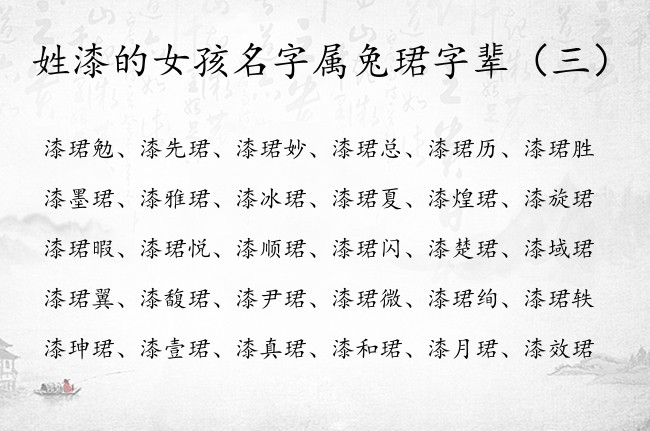 姓漆的女孩名字属兔珺字辈（三）
漆珺勉、漆先珺、漆珺妙、漆珺总、漆珺历、漆珺胜
漆墨珺、漆雅珺、漆冰珺、漆珺夏、漆煌珺、漆旋珺
漆珺暇、漆珺悦、漆顺珺、漆珺闪、漆楚珺、漆域珺
漆珺翼、漆馥珺、漆尹珺、漆珺微、漆珺绚、漆珺轶
漆珅珺、漆壹珺、漆真珺、漆和珺、漆月珺、漆效珺